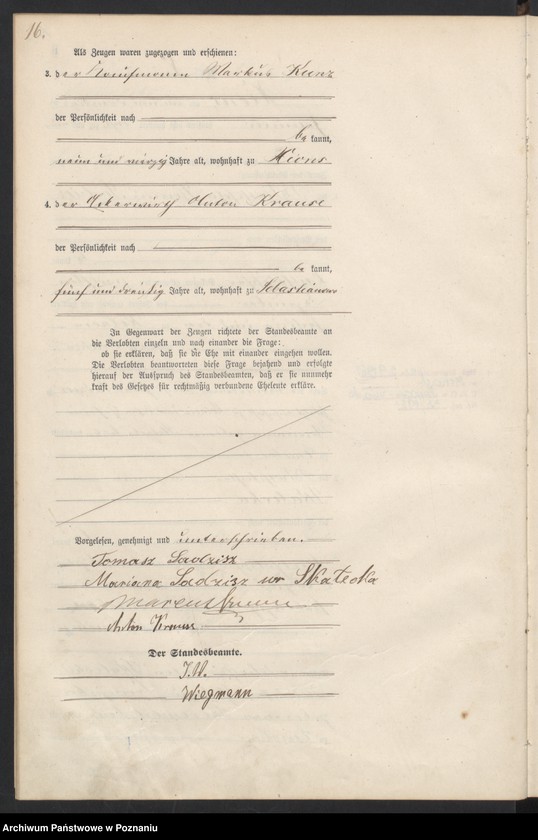 16.
Als Zeugen waren zugezogen und erschienen:
3. der Kaufmann Markus Kunz
der Persönlichkeit nach
be kannt,
neun und vierzig Jahre alt, wohnhaft zu Xions
4. der Ackerwirth Anton Krause
der Persönlichkeit nach
be kannt,
fünf und dreißig Jahre alt, wohnhaft zu Sebastianowo
In Gegenwart der Zeugen richtete der Standesbeamte an
die Verlobten einzeln und nach einander die Frage:
ob sie erklären, daß sie die Ehe mit einander eingehen wollen.
Die Verlobten beantworteten diese Frage bejahend und erfolgte
hierauf der Ausspruch des Standesbeamten, daß er sie nunmehr
kraft des Gesetzes für rechtmäßig verbundene Eheleute erkläre.
Vorgelesen, genehmigt und unterschrieben.
Tomasz Ladzisz
Mariana Ladzisz ur Skatecka
Anton Krause
Der Standesbeamte.
J.V.
Wiegmann
Archiwum Państwowe w Poznaniu